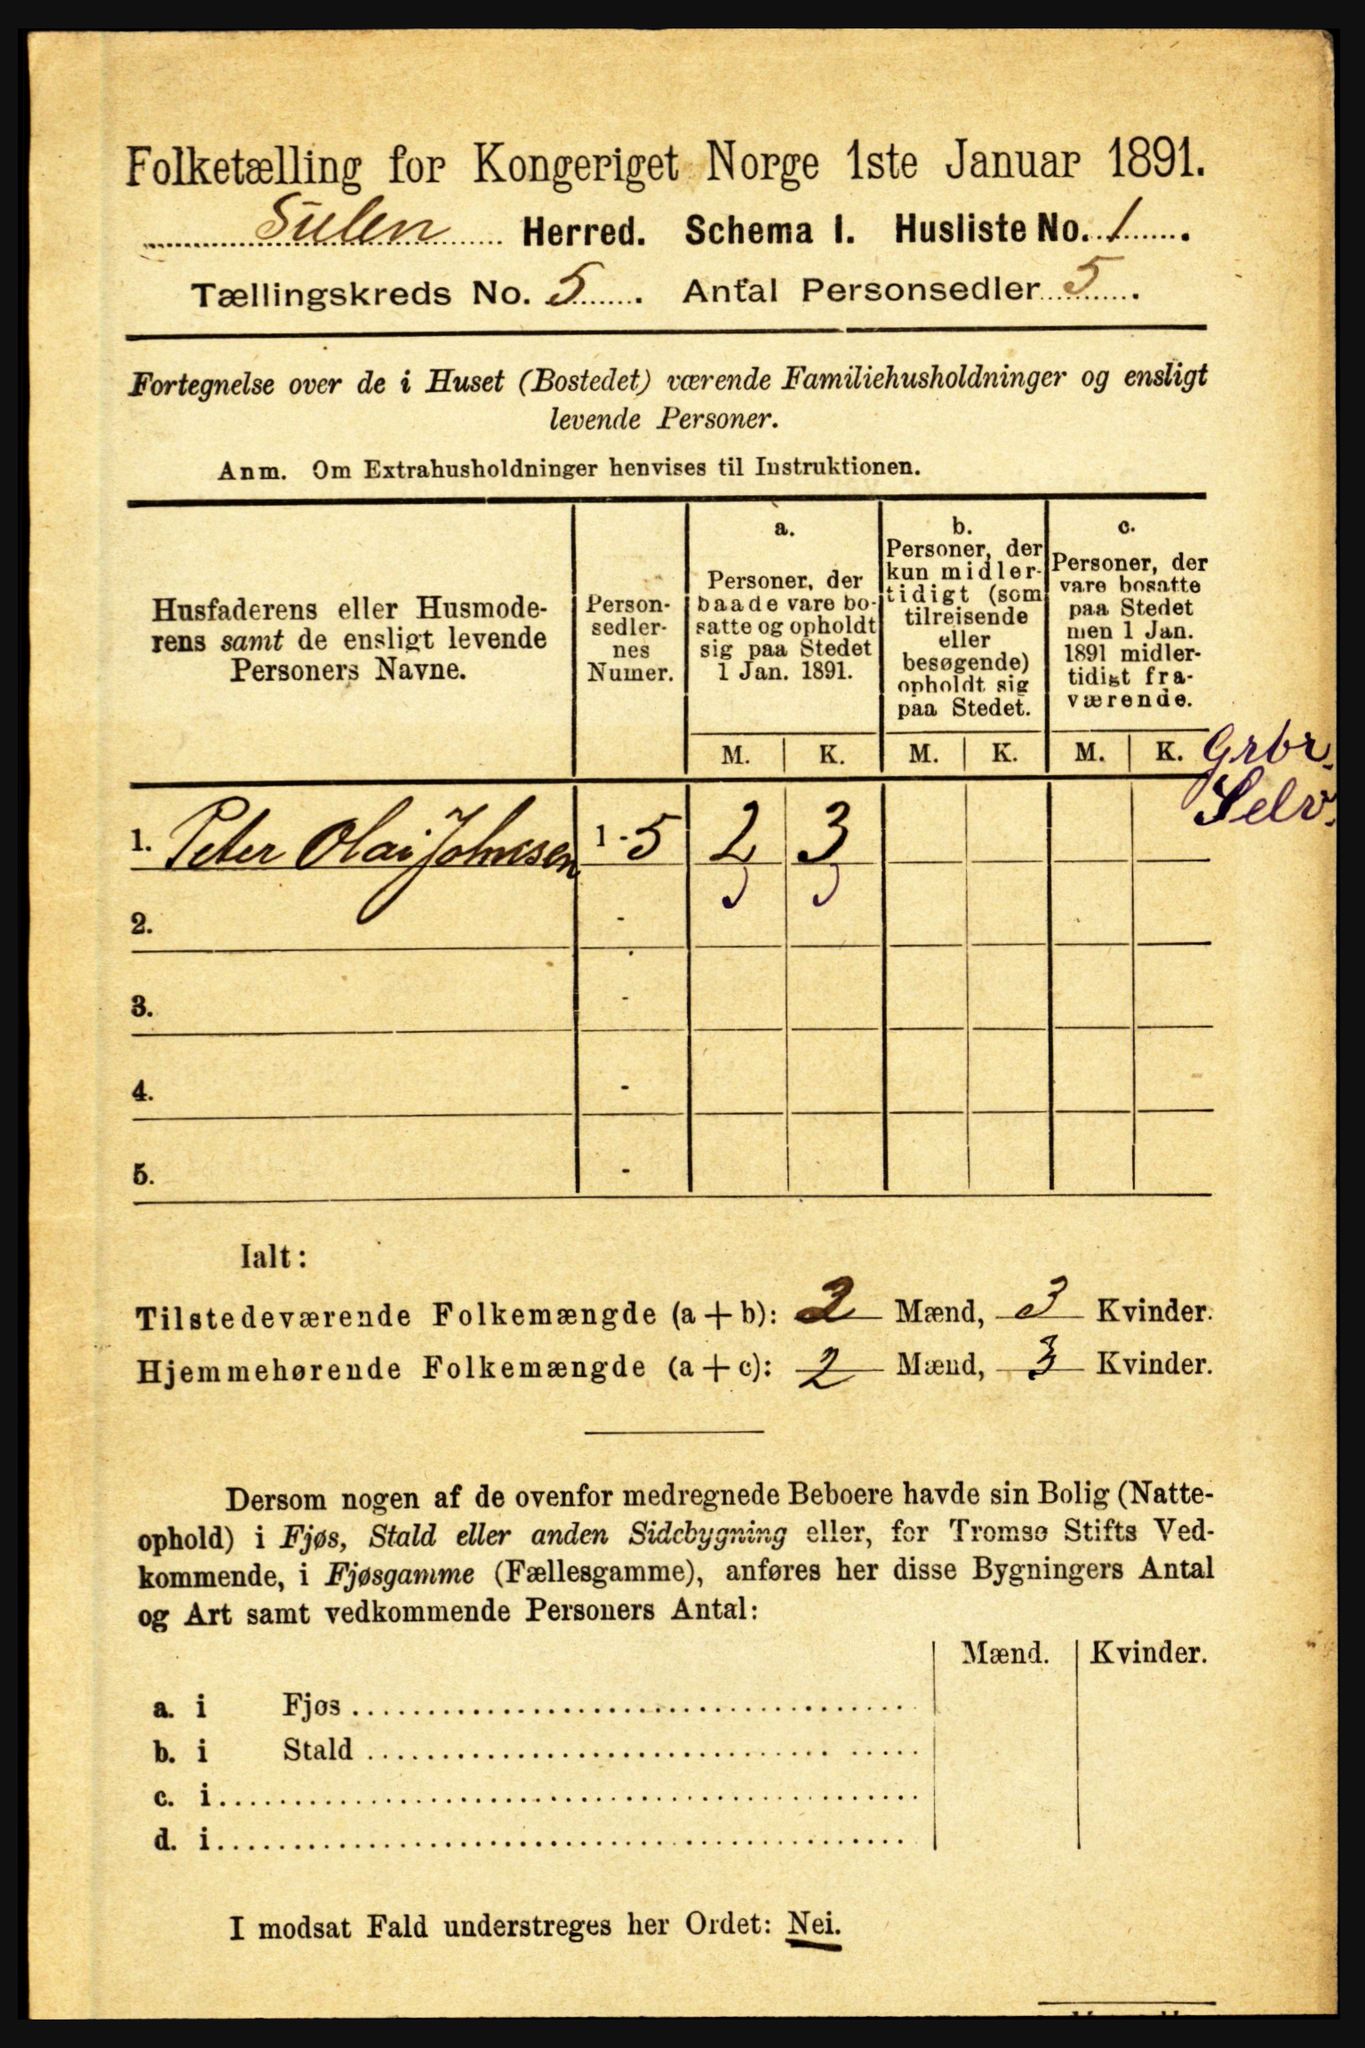 Folketælling for Kongeriget Norge 1ste Januar 1891.
Sulen Herred. Schema I. Husliste No. 1.
Tællingskreds No. 5. Antal Personsedler 5.
Fortegnelse over de i Huset (Bostedet) værende Familiehusholdninger og ensligt
levende Personer.
Anm. Om Extrahusholdninger henvises til Instruktionen.
Husfaderens eller Husmode-
rens samt de ensligt levende
Personers Navne.
Person-
sedler-
nes
Numer.
a.
Personer, der
baade vare bo-
satte og opholdt
sig paa Stedet
1 Jan. 1891.
b.
Personer, der
kun midler-
tidigt (som
tilreisende
eller
besøgende)
opholdt sig
paa Stedet.
c.
Personer, der
vare bosatte
paa Stedet
men 1 Jan.
1891 midler-
tidigt fra-
værende.
M. K. M. K. M. K.
Grbr.
Selv.
1. Peter Olai Johnsen 1-5 2 3
2. -
3. -
4. -
5. -
Ialt:
Tilstedeværende Folkemængde (a+b): 2 Mænd, 3 Kvinder.
Hjemmehørende Folkemængde (a+c): 2 Mænd, 3 Kvinder.
Dersom nogen af de ovenfor medregnede Beboere havde sin Bolig (Natte-
ophold) i Fjøs, Stald eller anden Sidebygning eller, for Tromsø Stifts Ved-
kommende, i Fjøsgamme (Fællesgamme), anføres her disse Bygningers Antal
og Art samt vedkommende Personers Antal:
Mænd. Kvinder.
a. i Fjøs
b. i Stald
c. i
d. i
I modsat Fald understreges her Ordet: Nei.